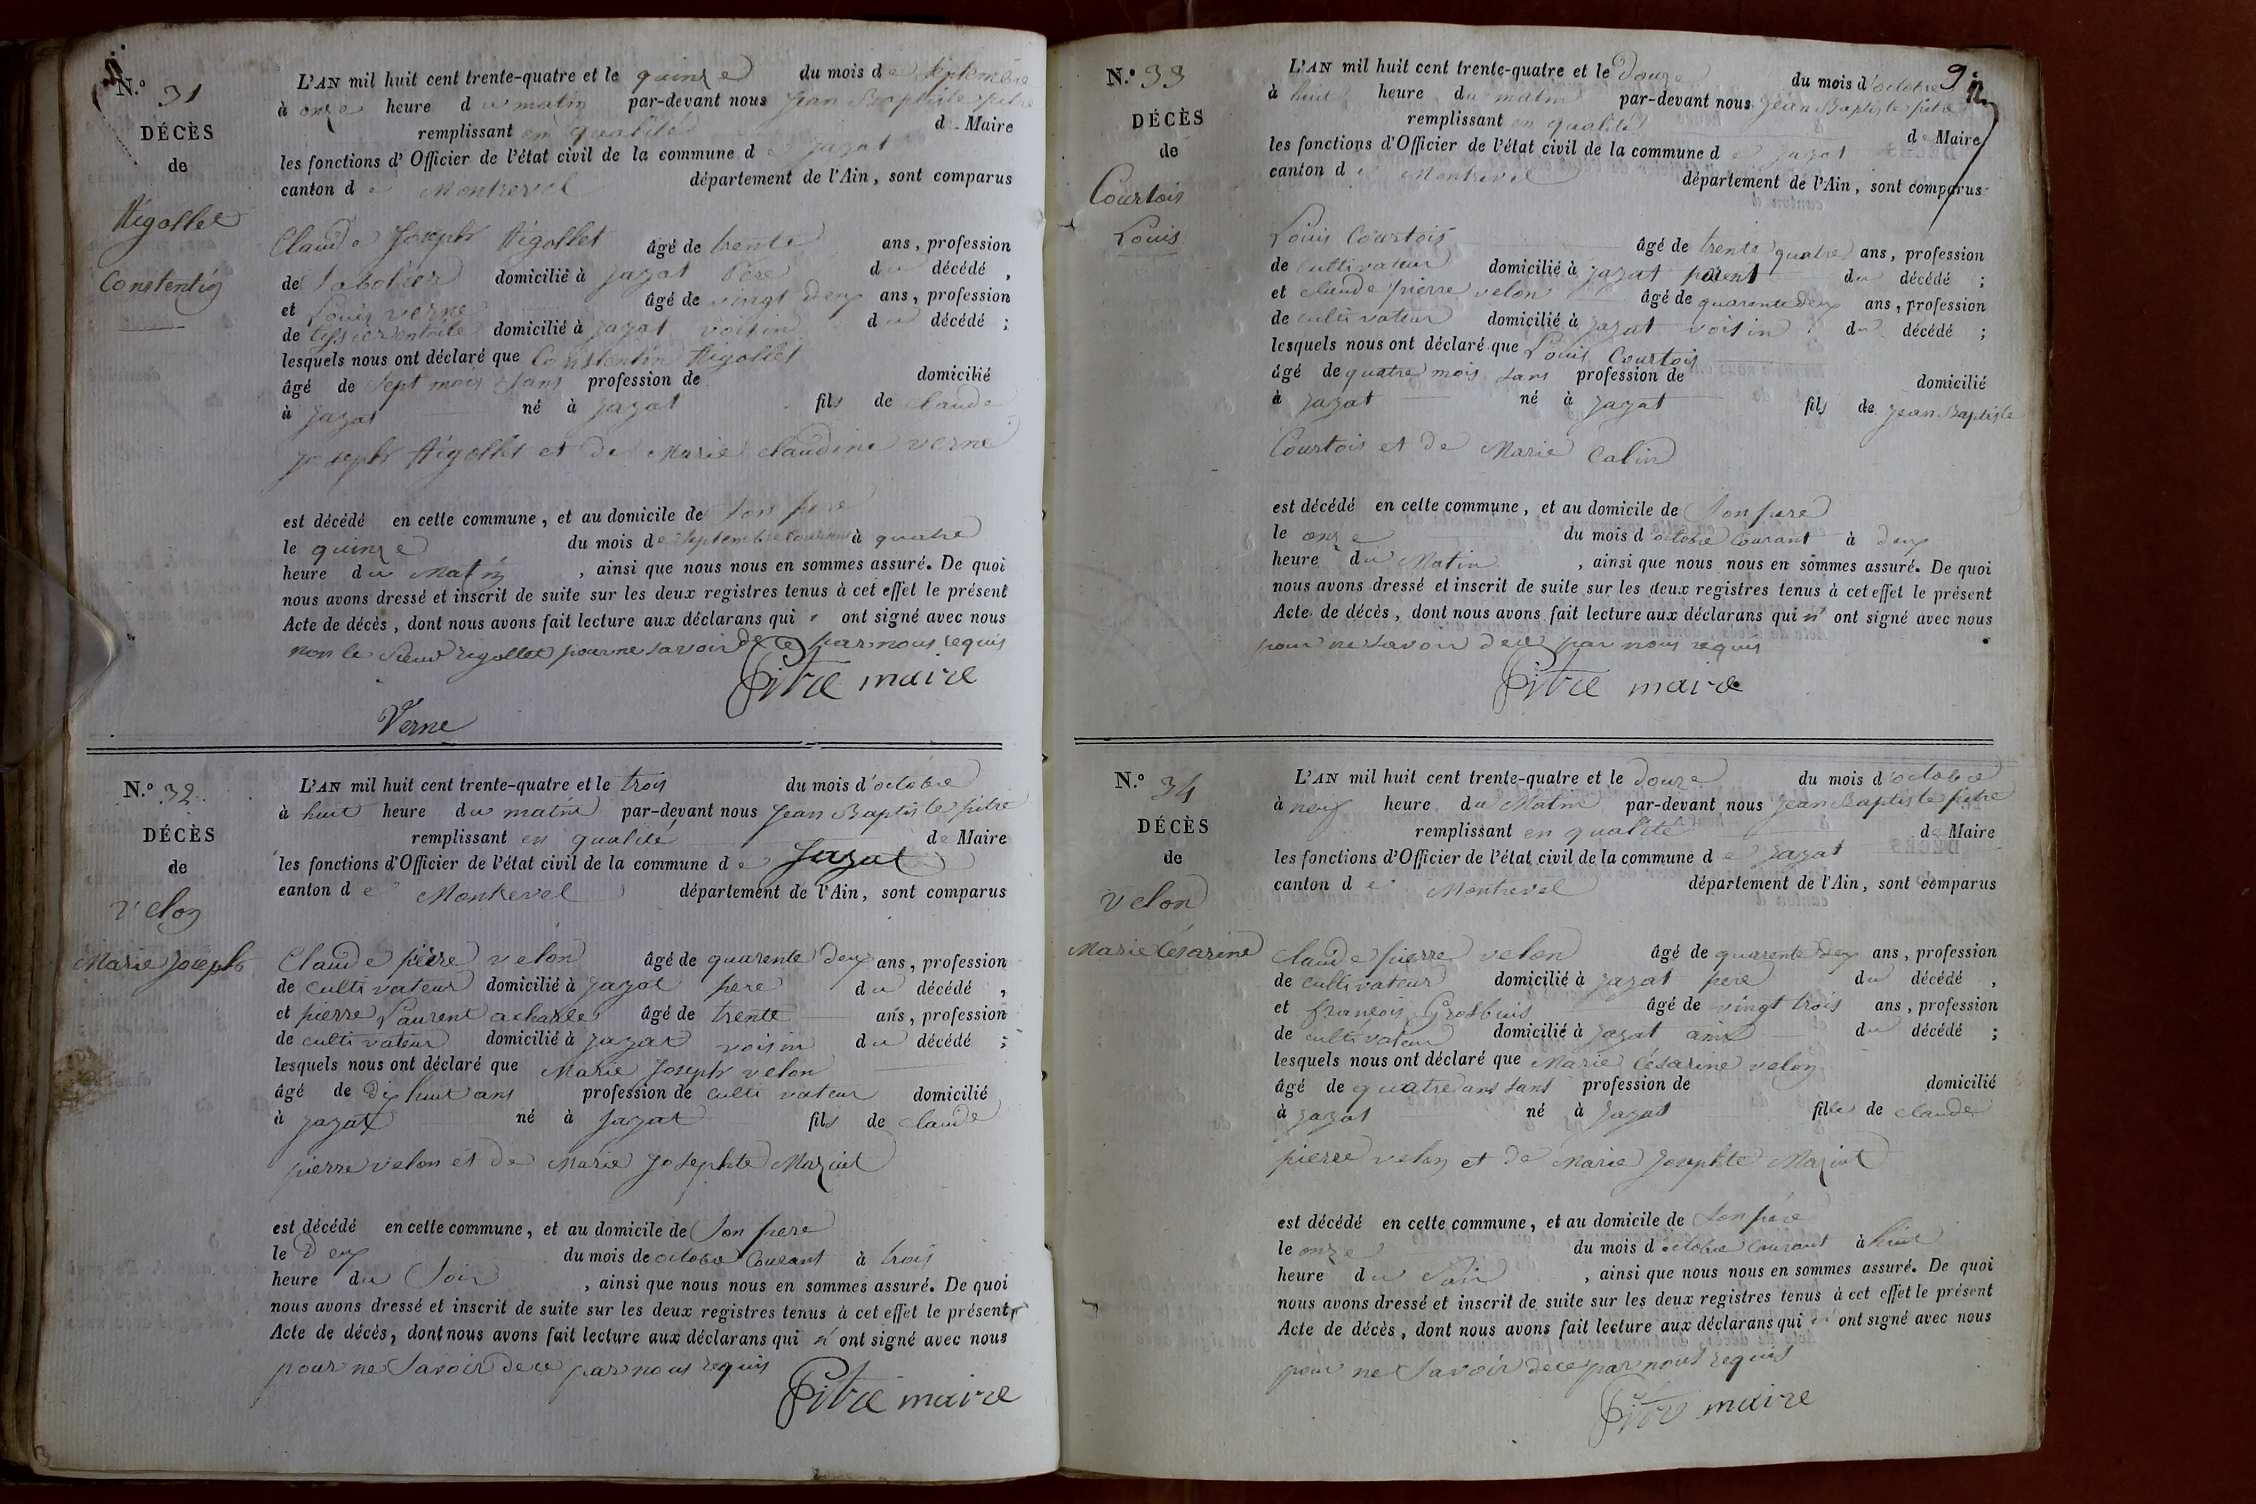 N.º 31
DÉCÈS
de
Rigollet
Constentin
L'AN mil huit cent trente-quatre et le quinze du mois de septembre
à onze heure du matin par-devant nous Jean Baptiste pitre
remplissant en qualité de Maire
les fonctions d'Officier de l'état civil de la commune de jayat
canton de Montrevel département de l'Ain, sont comparus
Claude Joseph Rigollet âgé de trente ans, profession
de domicilié à jayat Père du décédé,
et Louis verne âgé de vingt deux ans, profession
de domicilié à jayat voisin du décédé;
lesquels nous ont déclaré que Constentin Rigollet
âgé de sept mois sans profession de domicilié
à jayat né à jayat fils de claude
joseph Rigollet et de Marie claudine verne
est décédé en cette commune, et au domicile de Son pere
le quinze du mois de septembre courant à quatre
heure du Matin, ainsi que nous nous en sommes assuré. De quoi
nous avons dressé et inscrit de suite sur les deux registres tenus à cet effet le présent
Acte de décès, dont nous avons fait lecture aux déclarans qui ont signé avec nous
non le Sieur rigollet pour ne savoir de ce par nous requis
Pitre maire
Verne
N.º 32
DÉCÈS
de
velon
Marie Joseph
L'AN mil huit cent trente-quatre et le trois du mois d'octobre
à huit heure du matin par-devant nous Jean Baptiste pitre
remplissant en qualité de Maire
les fonctions d'Officier de l'état civil de la commune de Jayat
canton de Montrevel département de l'Ain, sont comparus
Claude pierre velon âgé de quarente deux ans, profession
de cultivateur domicilié à jayat pere du décédé,
et pierre Laurent acharles âgé de trente ans, profession
de cultivateur domicilié à jayat voisin du décédé;
lesquels nous ont déclaré que Marie Joseph velon
âgé de dix huit ans profession de cultivateur domicilié
à jayat né à jayat fils de claude
pierre velon et de Marie Josephte Maziut
est décédé en cette commune, et au domicile de Son pere
le deux du mois de octobre courant à trois
heure du Soir, ainsi que nous nous en sommes assuré. De quoi
nous avons dressé et inscrit de suite sur les deux registres tenus à cet effet le présent
Acte de décès, dont nous avons fait lecture aux déclarans qui n'ont signé avec nous
pour ne Savoir de ce par nous requis
Pitre maire
N.º 33
DÉCÈS
de
Courtois
Louis
L'AN mil huit cent trente-quatre et le douze du mois d'octobre
à huit heure du matin par-devant nous Jean Baptiste pitre
remplissant en qualité de Maire
les fonctions d'Officier de l'état civil de la commune de jayat
canton de Montrevel département de l'Ain, sont comparus
Louis Courtois âgé de trente quatre ans, profession
de cultivateur domicilié à jayat parent du décédé;
et claude pierre velon âgé de quarente deux ans, profession
de cultivateur domicilié à jayat voisin du décédé;
lesquels nous ont déclaré que Louis Courtois
âgé de quatre mois sans profession de domicilié
à jayat né à jayat fils de jean Baptiste
Courtois et de Marie Calin
est décédé en cette commune, et au domicile de Son pere
le onze du mois d'octobre courant à deux
heure du Matin, ainsi que nous nous en sommes assuré. De quoi
nous avons dressé et inscrit de suite sur les deux registres tenus à cet effet le présent
Acte de décès, dont nous avons fait lecture aux déclarans qui n'ont signé avec nous
pour ne savoir de ce par nous requis
Pitre maire
N.º 34
DÉCÈS
de
velon
Marie Césarine
L'AN mil huit cent trente-quatre et le douze du mois d'octobre
à neuf heure du Matin par-devant nous jean Baptiste pitre
remplissant en qualité de Maire
les fonctions d'Officier de l'état civil de la commune de jayat
canton de Montrevel département de l'Ain, sont comparus
claude pierre velon âgé de quarente deux ans, profession
de cultivateur domicilié à jayat pere du décédé,
et françois Grosbuis âgé de vingt trois ans, profession
de cultivateur domicilié à jayat ami du décédé;
lesquels nous ont déclaré que Marie Césarine velon
âgé de quatre ans sans profession de domicilié
à jayat né à jayat fille de claude
pierre velon et de Marie Josephte Maziut
est décédé en cette commune, et au domicile de Son pere
le onze du mois d'octobre courant à huit
heure du Soir, ainsi que nous nous en sommes assuré. De quoi
nous avons dressé et inscrit de suite sur les deux registres tenus à cet effet le présent
Acte de décès, dont nous avons fait lecture aux déclarans qui ont signé avec nous
pour ne Savoir de ce par nous requis
Pitre maire